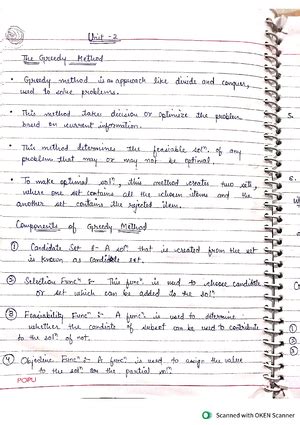 Unit - 2
The Greedy Method
• Greedy method is an approach like divide and conquer,
used to solve problems.
• This method takes decision or optimize the problem
based on current information.
• This method determines the feasible solⁿ. of any
problem that may or may not be optimal.
• To make optimal solⁿ., this method creates two sets,
where one set contains all the chosen items and the
another set contains the rejected item.
Components of Greedy Method
① Candidate Set :- A solⁿ that is created from the set
is known as candidate set.
② Selection Funcⁿ :- This funcⁿ. is used to choose candidate
or set which can be added to the solⁿ.
③ Feasibility Funcⁿ :- A funcⁿ. is used to determine
whether the candidate of subset can be used to contribute
to the solⁿ of not.
④ Objective Funcⁿ :- A funcⁿ. is used to assign the value
to the solⁿ. or the partial solⁿ.
POPU
5.
6.
Scanned with OKEN Scanner